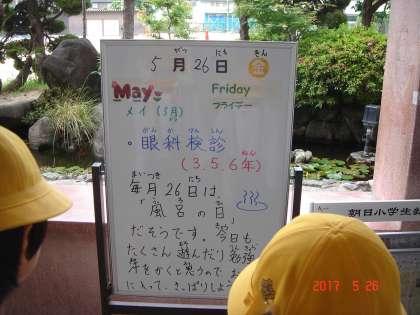 がつ にち きん
5月26日 金
May Friday
メイ(5月) フライデー
がん か けん しん
・眼科検診
ねん
(3.5.6年)
まい つき にち
毎月26日は、
「風呂の日」
だそうです。今日も
たくさん遊んだり勉強
汗をかくと思うので、お
にとって、さっぱりしよう
朝日小学生
2017 5 26